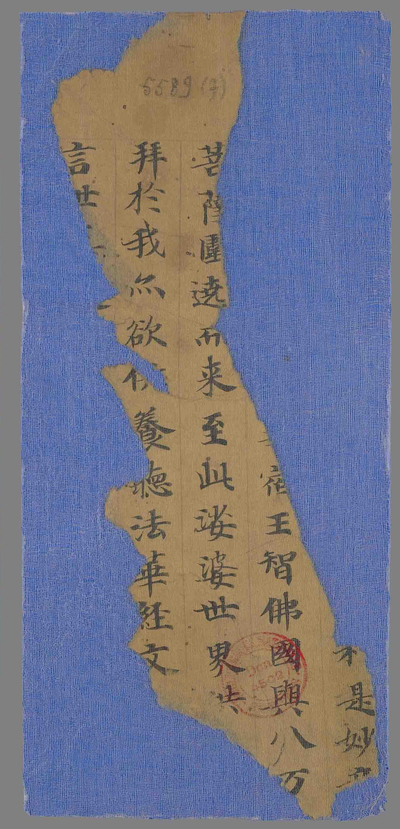 是妙
宿王智佛國與八万
菩薩圍遶而来至此娑婆世界供
拜於我亦欲供養聽法華経文
言世
5589